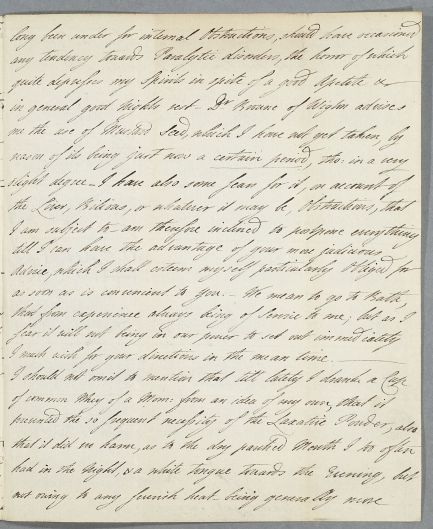 long been under for internal Obstructions, should have occasioned
any tendency towards Paralytic disorders, the horror of which
quite depresses my Spirits in spite of a good Apetite &
in general good Nights rest - Dr of advises
me the use of Mustard Seed, which I have not yet taken, by
reason of its being just now a certain period, tho: in a very
slight degree - I have also some fear for it, on account of
the Liver, Bilious, or whatever it may be, Obstructions, that
I am subject to - am therefore inclined to postpone everything
till I can have the advantage of your more judicious
Advice, which I shall esteem myself particularly Obliged for
as soon as is convenient to You. - We mean to go to Bath,
that from experience always being of Service to me; but as I
fear it will not being in our power to set out immediatly
I much wish for your directions in the mean time. -
I should not omit to mention that till lately I drank a Cup
of common Whey of a Morn: from an idea of my own, that it
prevented the so frequent necessity of the Laxative Powder, also
that it did no harm, as to the dry parched Mouth I so often
had in the Night, & a white tongue towards the Evening, but
not owing to any feverish heat - being generally more